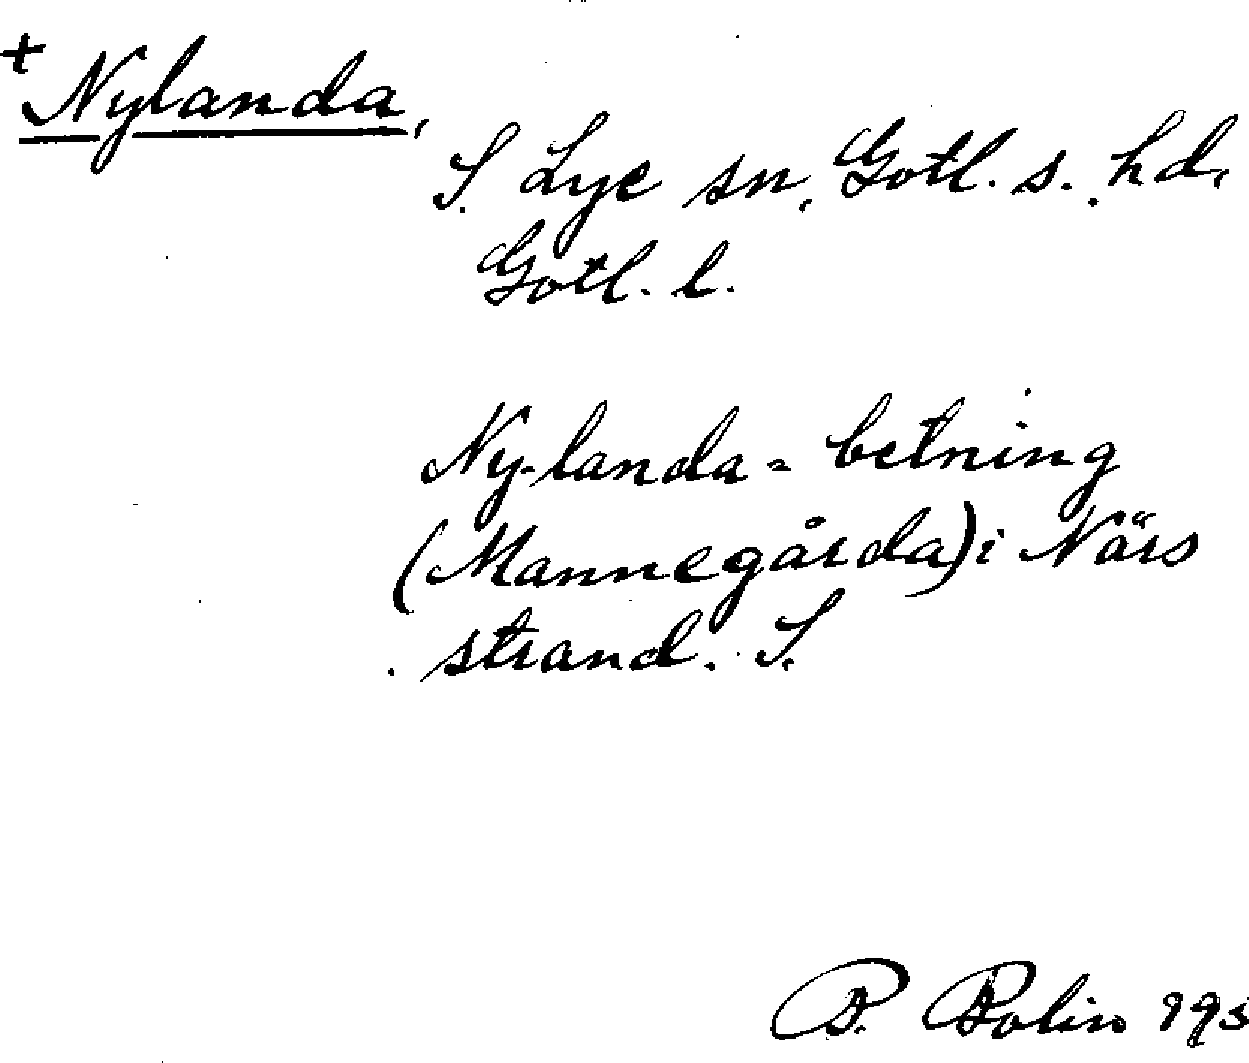 + Nylanda,
S. Lye sn, Gotl. s. hd,
Gotl. l.
Ny-landa - betning
(Mannegårda) i Närs
strand. S.